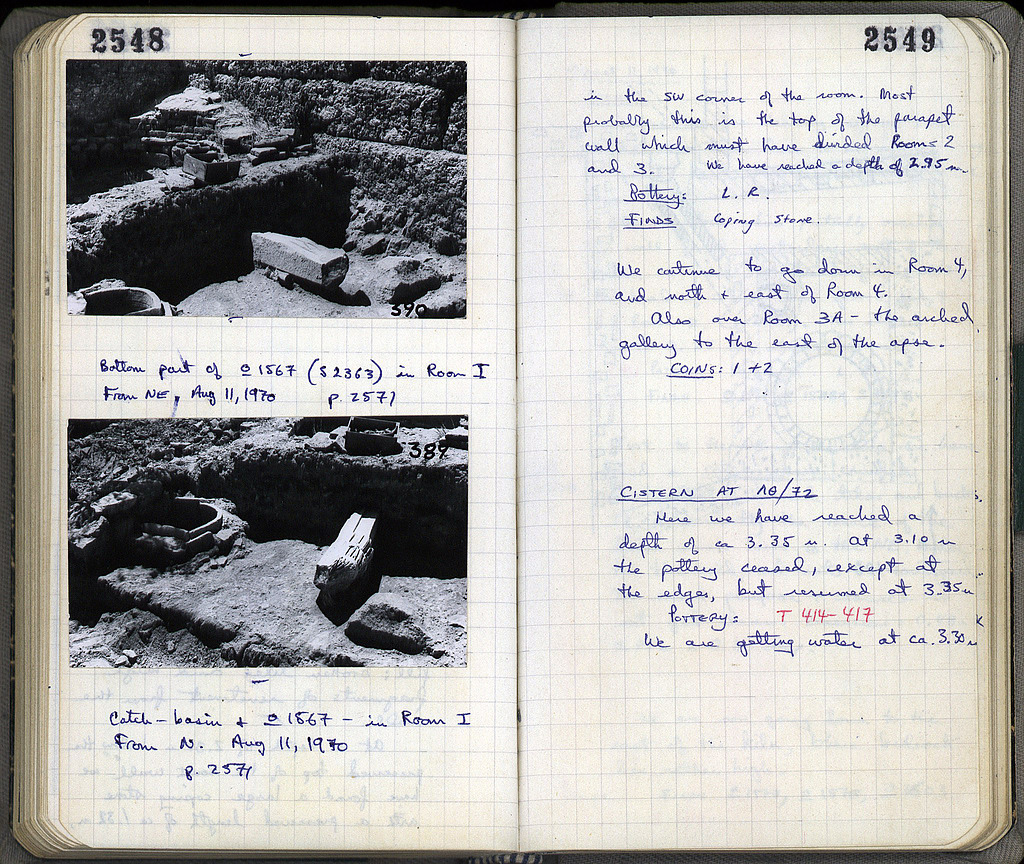 2548
390
Bottom part of o 1567 (S 2363) in Room I
From NE, Aug 11, 1970 p. 2571
389
Catch-basin + o 1567 - in Room I
From N. Aug 11, 1970
p. 2571
2549
in the SW corner of the room. Most
probably this is the top of the parapet
wall which must have divided Rooms 2
and 3. We have reached a depth of 2.95 m.
Pottery: L. R.
FINDS Coping stone.
We continue to go down in Room 4,
and north + east of Room 4.
Also over Room 3A - the arched
gallery to the east of the apse.
COINS: 1 + 2
CISTERN AT ΛΘ/72
Here we have reached a
depth of ca 3.35 m. at 3.10 m
the pottery ceased, except at
the edges, but resumed at 3.35 m
POTTERY: T 414-417
We are getting water at ca. 3.30 m